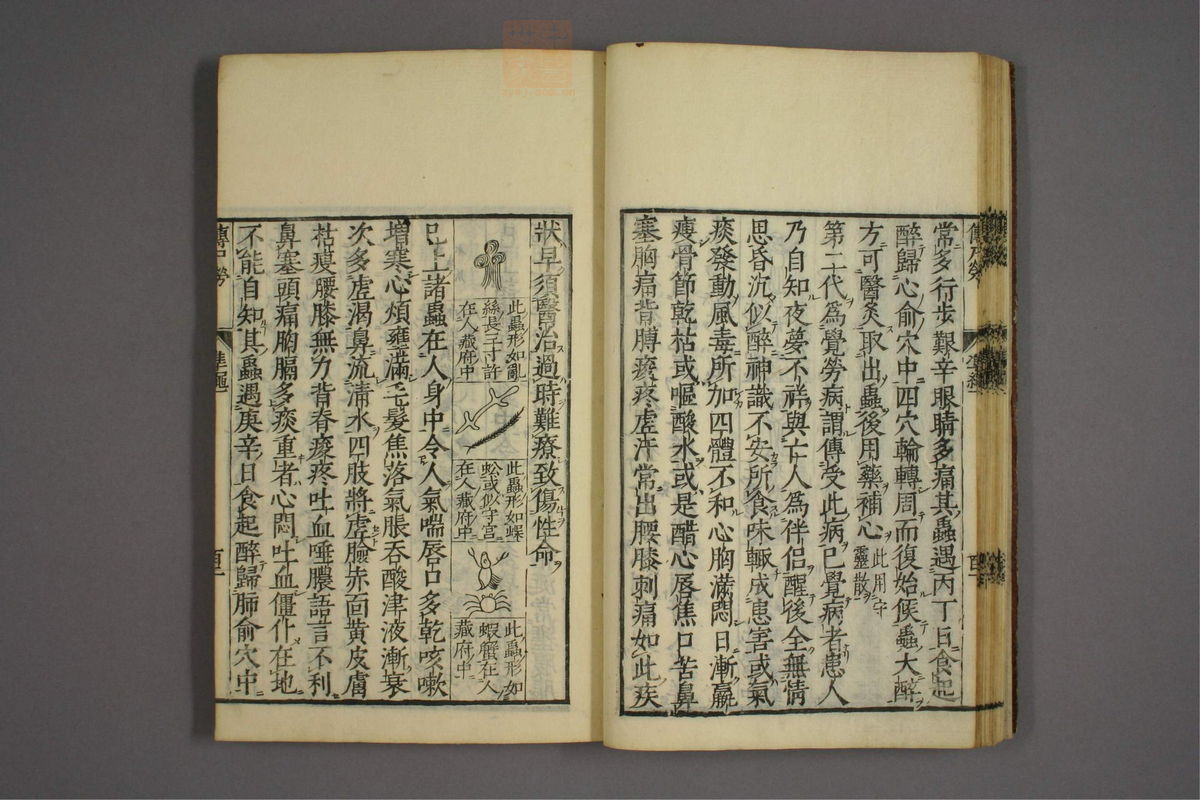 常多行步艱辛眼睛多痛其蟲遇丙丁日食起
醉歸心俞穴中四穴輪轉周而復始候蟲大醉
方可醫灸取出蟲後用藥補心此用守靈散
第二代爲覺勞病謂傳受此病已覺病者患人
乃自知夜夢不祥與亡人爲伴侶醒後全無情
思昏沉似醉神識不安所食味輒成患害或氣
痰發動風毒所加四體不和心胸滿悶日漸羸
瘦骨節乾枯或嘔酸水或是醋心唇焦口苦鼻
塞胸痛背膊痠疼虛汗常出腰膝刺痛如此疾
狀早須醫治過時難療致傷性命
此蟲形如亂
絲長三寸許
在人藏府中
此蟲形如蝶
蚣或似守宮
在人藏府中
此蟲形如
蝦蟹在人
藏府中
已上諸蟲在人身中令人氣喘唇口多乾咳嗽
增寒心煩壅滿毛髮焦落氣脹吞酸津液漸衰
次多虛渴鼻流清水四肢將虛臉赤面黃皮膚
枯瘦腰膝無力背脊痠疼吐血唾膿語言不利
鼻塞頭痛胸膈多痰重者心悶吐血僵仆在地
不能自知其蟲遇庚辛日食起醉歸肺俞穴中